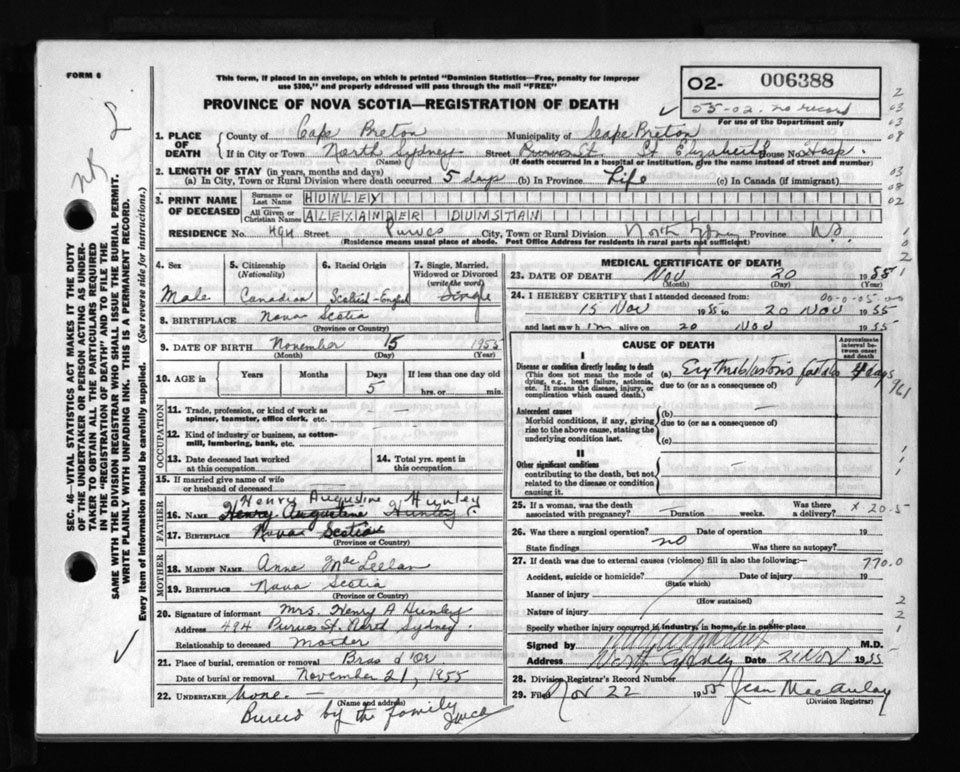 FORM 6
This form, if placed in an envelope, on which is printed "Dominion Statistics—Free, penalty for improper
use $300," and properly addressed will pass through the mail "FREE"
PROVINCE OF NOVA SCOTIA—REGISTRATION OF DEATH
02- 006388
55-02. no record
For use of the Department only
1. PLACE OF DEATH
County of Cape Breton Municipality of Cape Breton
If in City or Town North Sydney Street St Elizabeth's House No. Hosp.
(Name) (If death occurred in a hospital or institution, give the name instead of street and number)
2. LENGTH OF STAY (in years, months and days)
(a) In City, Town or Rural Division where death occurred 5 days (b) In Province Life (c) In Canada (if immigrant)
3. PRINT NAME OF DECEASED
Surname or Last Name HUNLEY
All Given or Christian Names ALEXANDER DUNSTAN
RESIDENCE No. 494 Street Purves City, Town or Rural Division North Sydney Province N.S.
(Residence means usual place of abode. Post Office Address for residents in rural parts not sufficient)
4. Sex Male
5. Citizenship (Nationality) Canadian
6. Racial Origin Scotish-English
7. Single, Married, Widowed or Divorced (write the word) Single
8. BIRTHPLACE Nova Scotia
(Province or Country)
9. DATE OF BIRTH November 15 1955
(Month) (Day) (Year)
10. AGE in Years Months Days 5 If less than one day old hrs. or min.
OCCUPATION
11. Trade, profession, or kind of work as spinner, teamster, office clerk, etc. —
12. Kind of industry or business, as cotton-mill, lumbering, bank, etc. —
13. Date deceased last worked at this occupation
14. Total yrs. spent in this occupation
15. If married give name of wife or husband of deceased
FATHER
Henry Augustine Hunley
16. NAME Henry Augustine Hunley
17. BIRTHPLACE Nova Scotia
(Province or Country)
MOTHER
18. MAIDEN NAME Anne MacLellan
19. BIRTHPLACE Nova Scotia
(Province or Country)
20. Signature of informant Mrs. Henry A Hunley
Address 494 Purves St. North Sydney
Relationship to deceased Mother
21. Place of burial, cremation or removal Bras d'Or
Date of burial or removal November 21, 1955
22. UNDERTAKER None. —
(Name and address)
Buried by the family
MEDICAL CERTIFICATE OF DEATH
23. DATE OF DEATH Nov 20 1955
(Month) (Day)
24. I HEREBY CERTIFY that I attended deceased from:
00-0-05-00
15 Nov 1955 to 20 Nov 1955
and last saw him alive on 20 Nov 1955
CAUSE OF DEATH
Approximate interval between onset and death
I
Disease or condition directly leading to death
(This does not mean the mode of dying, e.g., heart failure, asthenia, etc. It means the disease, injury, or complication which caused death.)
(a) Erythroblastosis foetalis days
due to (or as a consequence of)
Antecedent causes
Morbid conditions, if any, giving rise to the above cause, stating the underlying condition last.
(b) —
due to (or as a consequence of)
(c)
II
Other significant conditions
contributing to the death, but not related to the disease or condition causing it.
25. If a woman, was the death associated with pregnancy? Duration weeks. Was there a delivery? x 20.5
26. Was there a surgical operation? no Date of operation 19
State findings Was there an autopsy?
27. If death was due to external causes (violence) fill in also the following: 770.0
Accident, suicide or homicide? Date of injury 19
(State which)
Manner of injury
(How sustained)
Nature of injury
Specify whether injury occurred in industry, in home, or in public place
Signed by M.D.
Address North Sydney Date 21 Nov 1955
28. Division Registrar's Record Number
29. Filed Nov 22 1955 Jean MacAulay
(Division Registrar)
SEC. 46—VITAL STATISTICS ACT MAKES IT THE DUTY
OF THE UNDERTAKER OR PERSON ACTING AS UNDER-
TAKER TO OBTAIN ALL THE PARTICULARS REQUIRED
IN THE "REGISTRATION OF DEATH" AND TO FILE THE
SAME WITH THE DIVISION REGISTRAR WHO SHALL ISSUE THE BURIAL PERMIT.
WRITE PLAINLY WITH UNFADING INK. THIS IS A PERMANENT RECORD.
Every item of information should be carefully supplied. (See reverse side for instructions.)